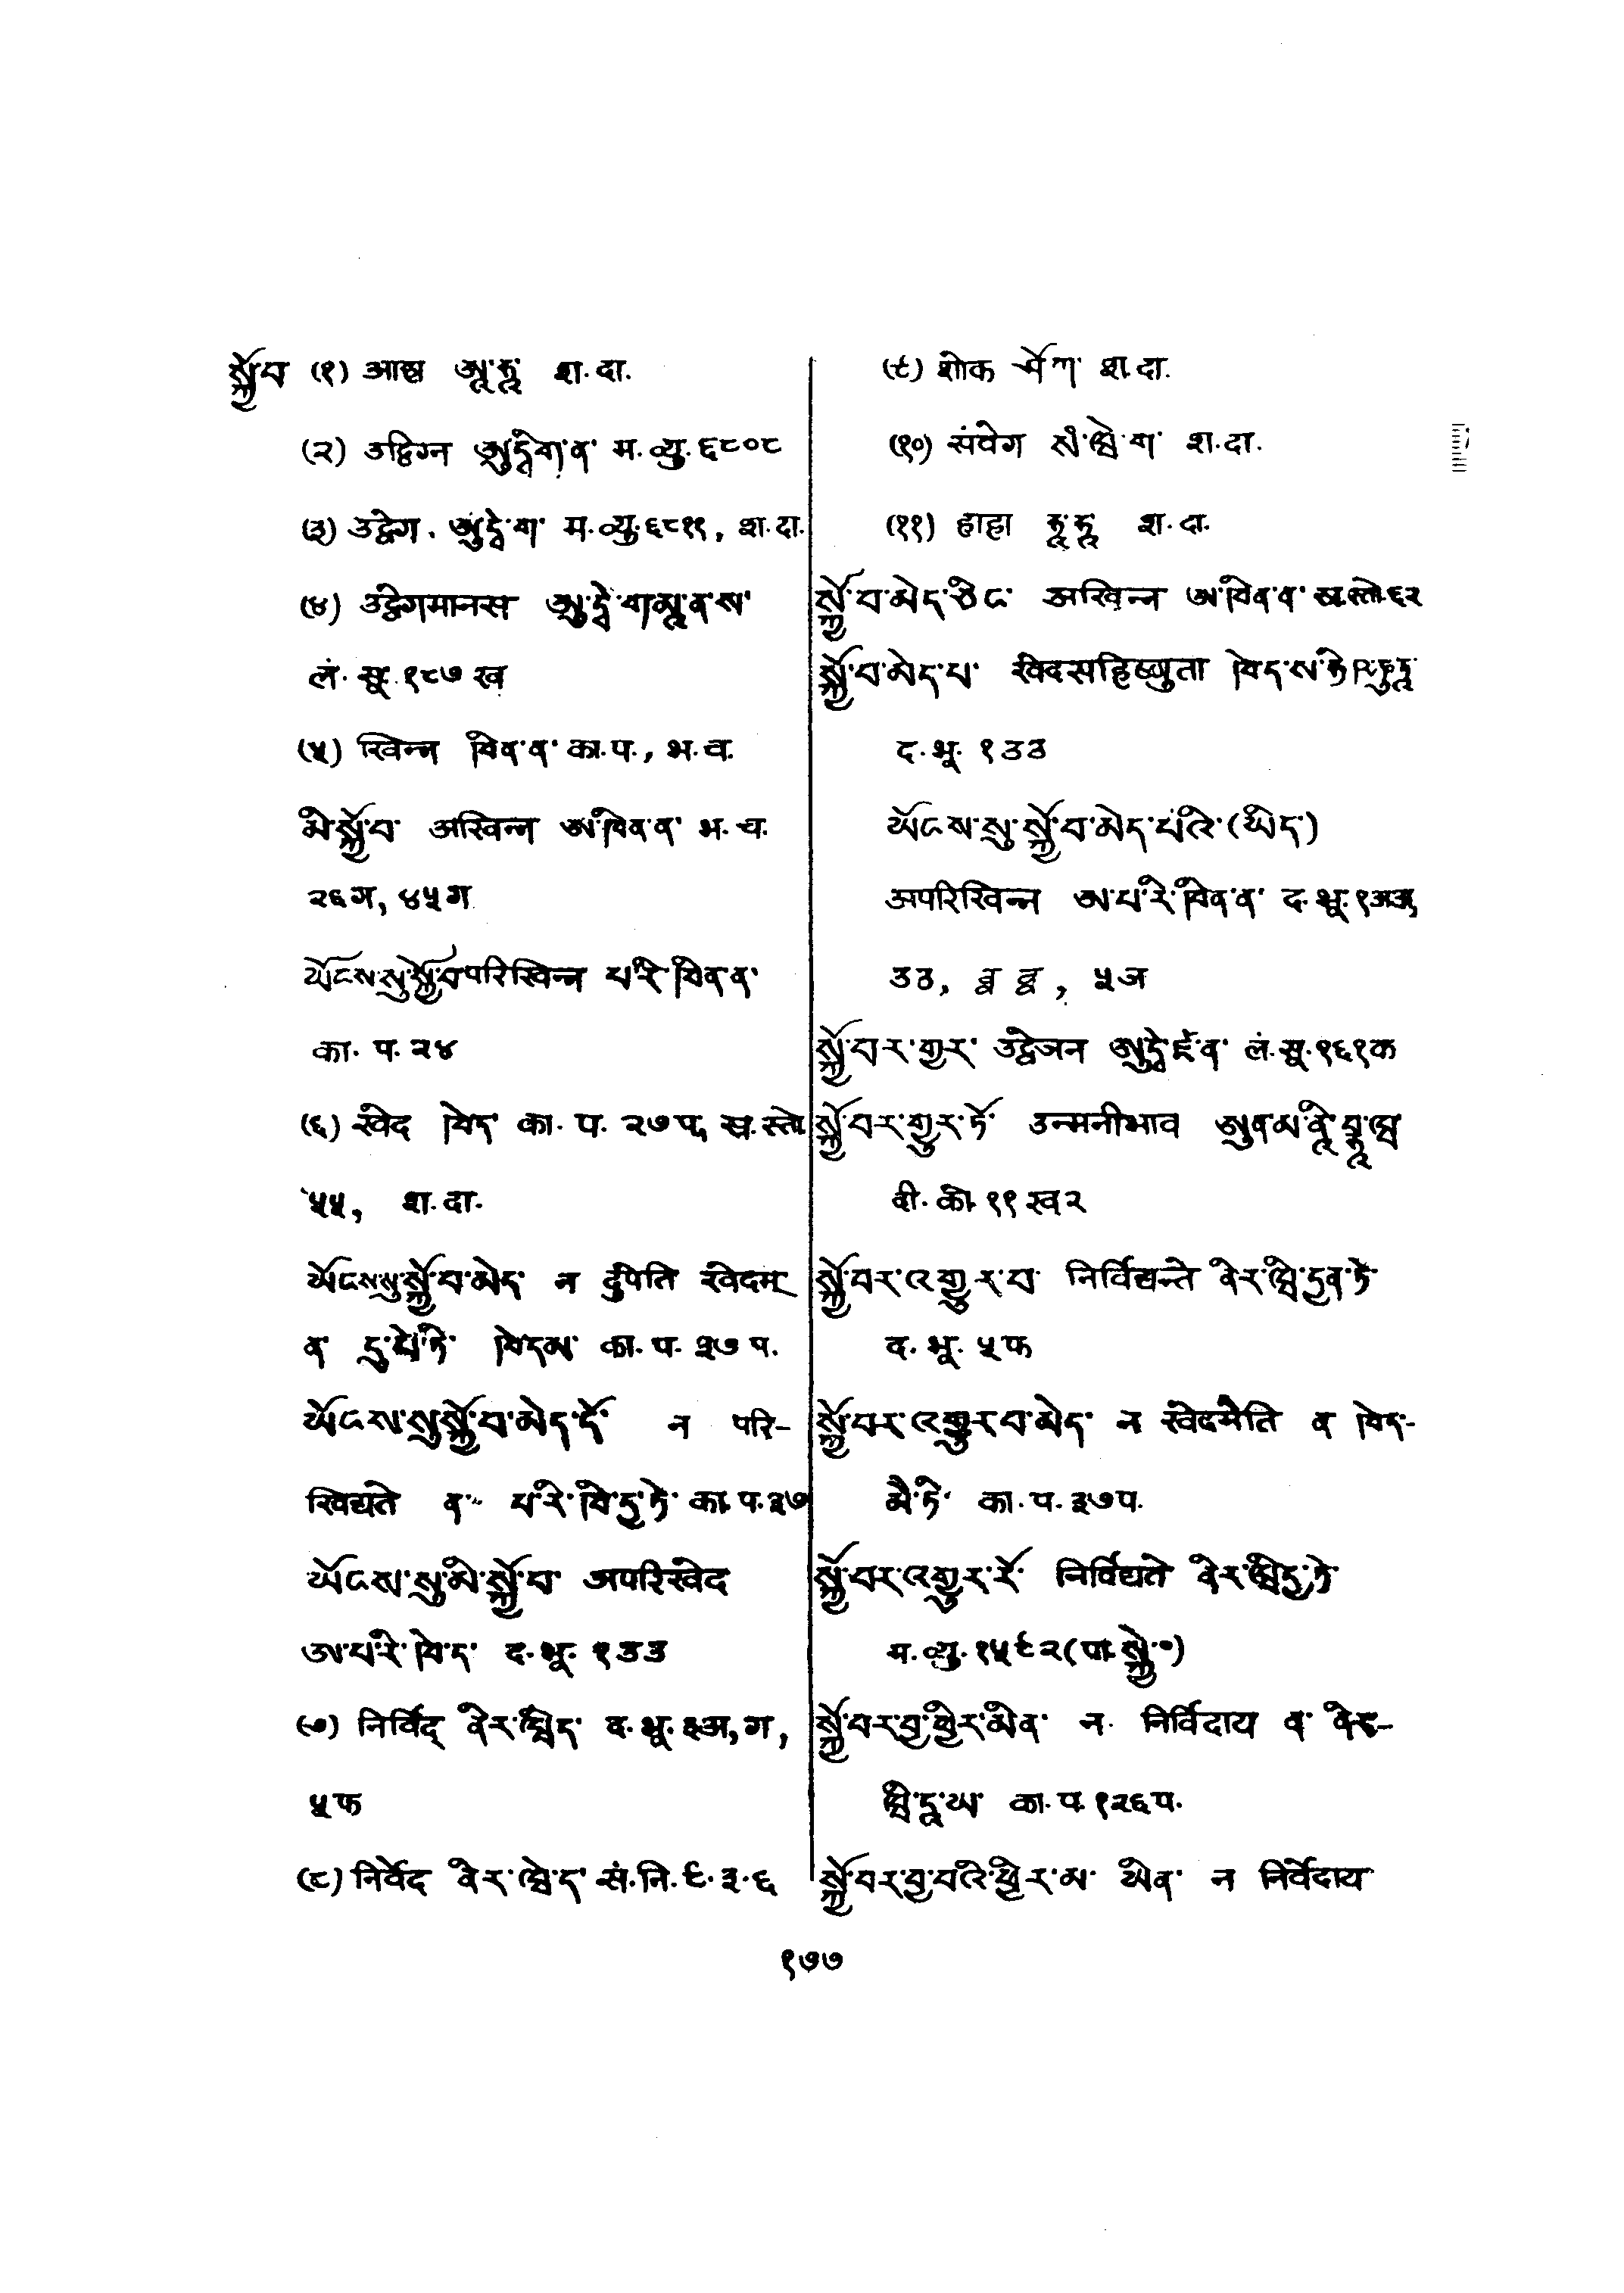 སྐྱོ་བ (१) आहा ཨཱ་ཧཱ་ श.दा.
(२) उद्विग्न ཨུདྭིག་ན་ म.व्यु.६८०८
(३) उद्वेग. ཨུདྭེ་ག་ म.व्यु.६८११, श.दा.
(४) उद्वेगमानस ཨུ་དྭེ་གམཱ་ན་ས་
लं.सू.१८७ख
(५) खिन्न ཁིན་ན་ का.प., भ.च.
མི་སྐྱོ་བ་ अखिन्न ཨ་ཁིན་ན་ भ.च.
२६ग, ४५ग
ཡོངས་སུ་སྐྱོ་བ परिखिन्न པ་རི་ཁིན་ན་
का. प. २४
(६) खेद ཁེད་ का. प. २७प, ख.स्तो.
५५, श.दा.
ཡོངས་སུ་སྐྱོ་བ་མེད་ न दुपेति खेदम्
ན་ དུ་པེ་ཏི་ ཁེདམ་ का.प. ३७ प.
ཡོངས་སུ་སྐྱོ་བ་མེད་དོ་ न परि-
खिद्यते ན་ པ་རི་ཁི་དྱ་ཏེ་ का.प.३७
ཡོངས་སུ་མི་སྐྱོ་བ་ अपरिखेद
ཨ་པ་རི་ཁེ་ད་ द.भू. १उउ
(७) निर्विद् ནིར་ཝིད་ द.भू.३अ,ग,
५फ
(८) निर्वेद ནིར་ཝེ་ད་ सं.नि.९.३.६
(९) शोक ཤོ་ཀ་ श.दा.
(१०) संवेग སཾ་ཝེ་ག་ श.दा.
(११) हाहा ཧཱ་ཧཱ་ श.दा.
སྐྱོ་བ་མེད་ཅིང་ अखिन्न ཨ་ཁིན་ན་ ख.स्तो.६२
སྐྱོ་བ་མེད་པ་ खेदसहिष्णुता ཁེད་ས་ཧི་ཥྞུ་ཏཱ་
द.भू. १उउ
ཡོངས་སུ་སྐྱོ་བ་མེད་པའི་(ཡིད་)
अपरिखिन्न ཨ་པ་རི་ཁིན་ན་ द.भू.१अअ,
५ञ
སྐྱོ་བར་གྱུར་ उद्वेजन ཨུདྭེ་ཛ་ན་ लं.सू.१६१क
སྐྱོ་བར་གྱུར་ཏོ་ उन्मनीभाव ཨུནམ་ནཱི་བྷཱ་ཝ
बी.को.११ख२
སྐྱོ་བར་འགྱུར་བ་ निर्विद्यन्ते ནིར་ཝི་དྱན་ཏེ་
द.भू. ५फ
སྐྱོ་བར་འགྱུར་བ་མེད་ न खेदमैति ན་ ཁེད་-
མཻ་ཏི་ का.प.३७प.
སྐྱོ་བར་འགྱུར་རོ་ निर्विद्यते ནིར་ཝིདྱ་ཏེ་
म.व्यु.१५९२(पा.སྐྱེ་॰)
སྐྱོ་བར་བྱ་ཕྱིར་མིན་ न निर्विदाय ན་ ནིར-
ཝི་དཱ་ཡ་ का.प.१२६प.
སྐྱོ་བར་བྱ་བའི་ཕྱིར་མ་ ཡིན་ न निर्वेदाय
१७७